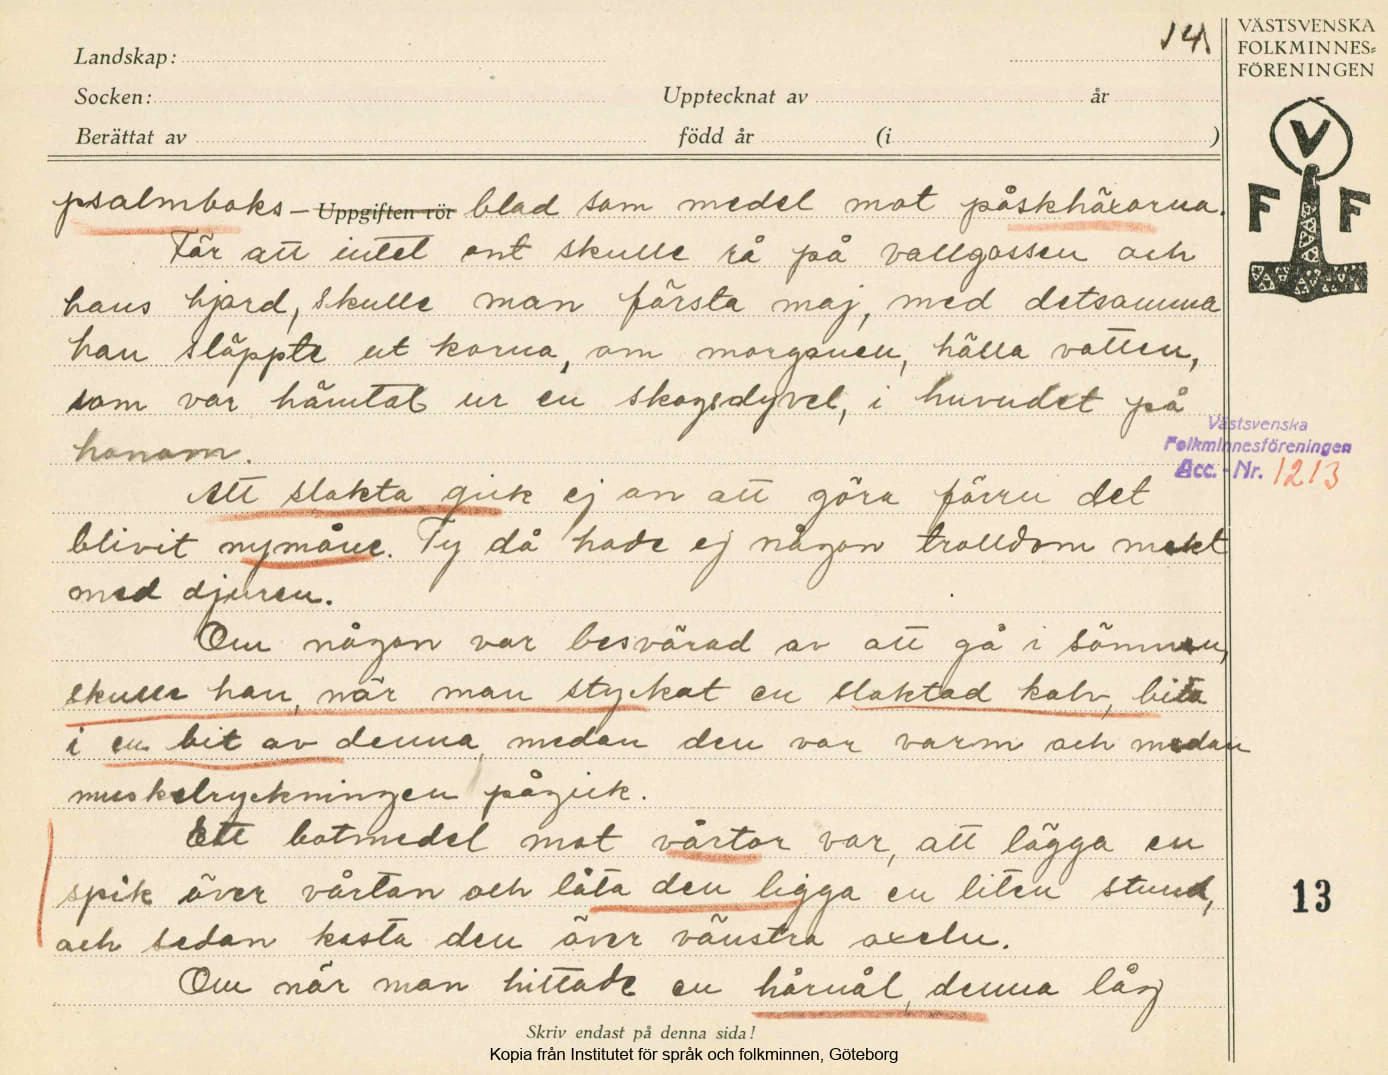 14
VÄSTSVENSKA
FOLKMINNES=
FÖRENINGEN
Landskap:
Socken: Upptecknat av år
Berättat av född år (i )
V
F F
psalmboks- Uppgiften rör blad som medel mot påskhäxorna.
För att intet ont skulle rå på vallgossen och
hans hjord, skulle man första maj, med detsamma
han släppte ut korna, om morgonen, hälla vatten,
som var hämtat ur en skogsdyvel, i huvudet på
honom.
Västsvenska
Folkminnesföreningen
Acc. - Nr. 1213
Att slakta gick ej an att göra förrn det
blivit nymåne. Ty då hade ej någon trolldom makt
med djuren.
Om någon var besvärad av att gå i sömnen,
skulle han, när man styckat en slaktad kalv, bita
i en bit av denna medan den var varm och medan
muskelryckningen pågick.
Ett botmedel mot vårtor var, att lägga en
spik över vårtan och låta den ligga en liten stund,
13
och sedan kasta den över vänstra axeln.
Om när man hittade en hårnål, denna låg
Skriv endast på denna sida!
Kopia från Institutet för språk och folkminnen, Göteborg